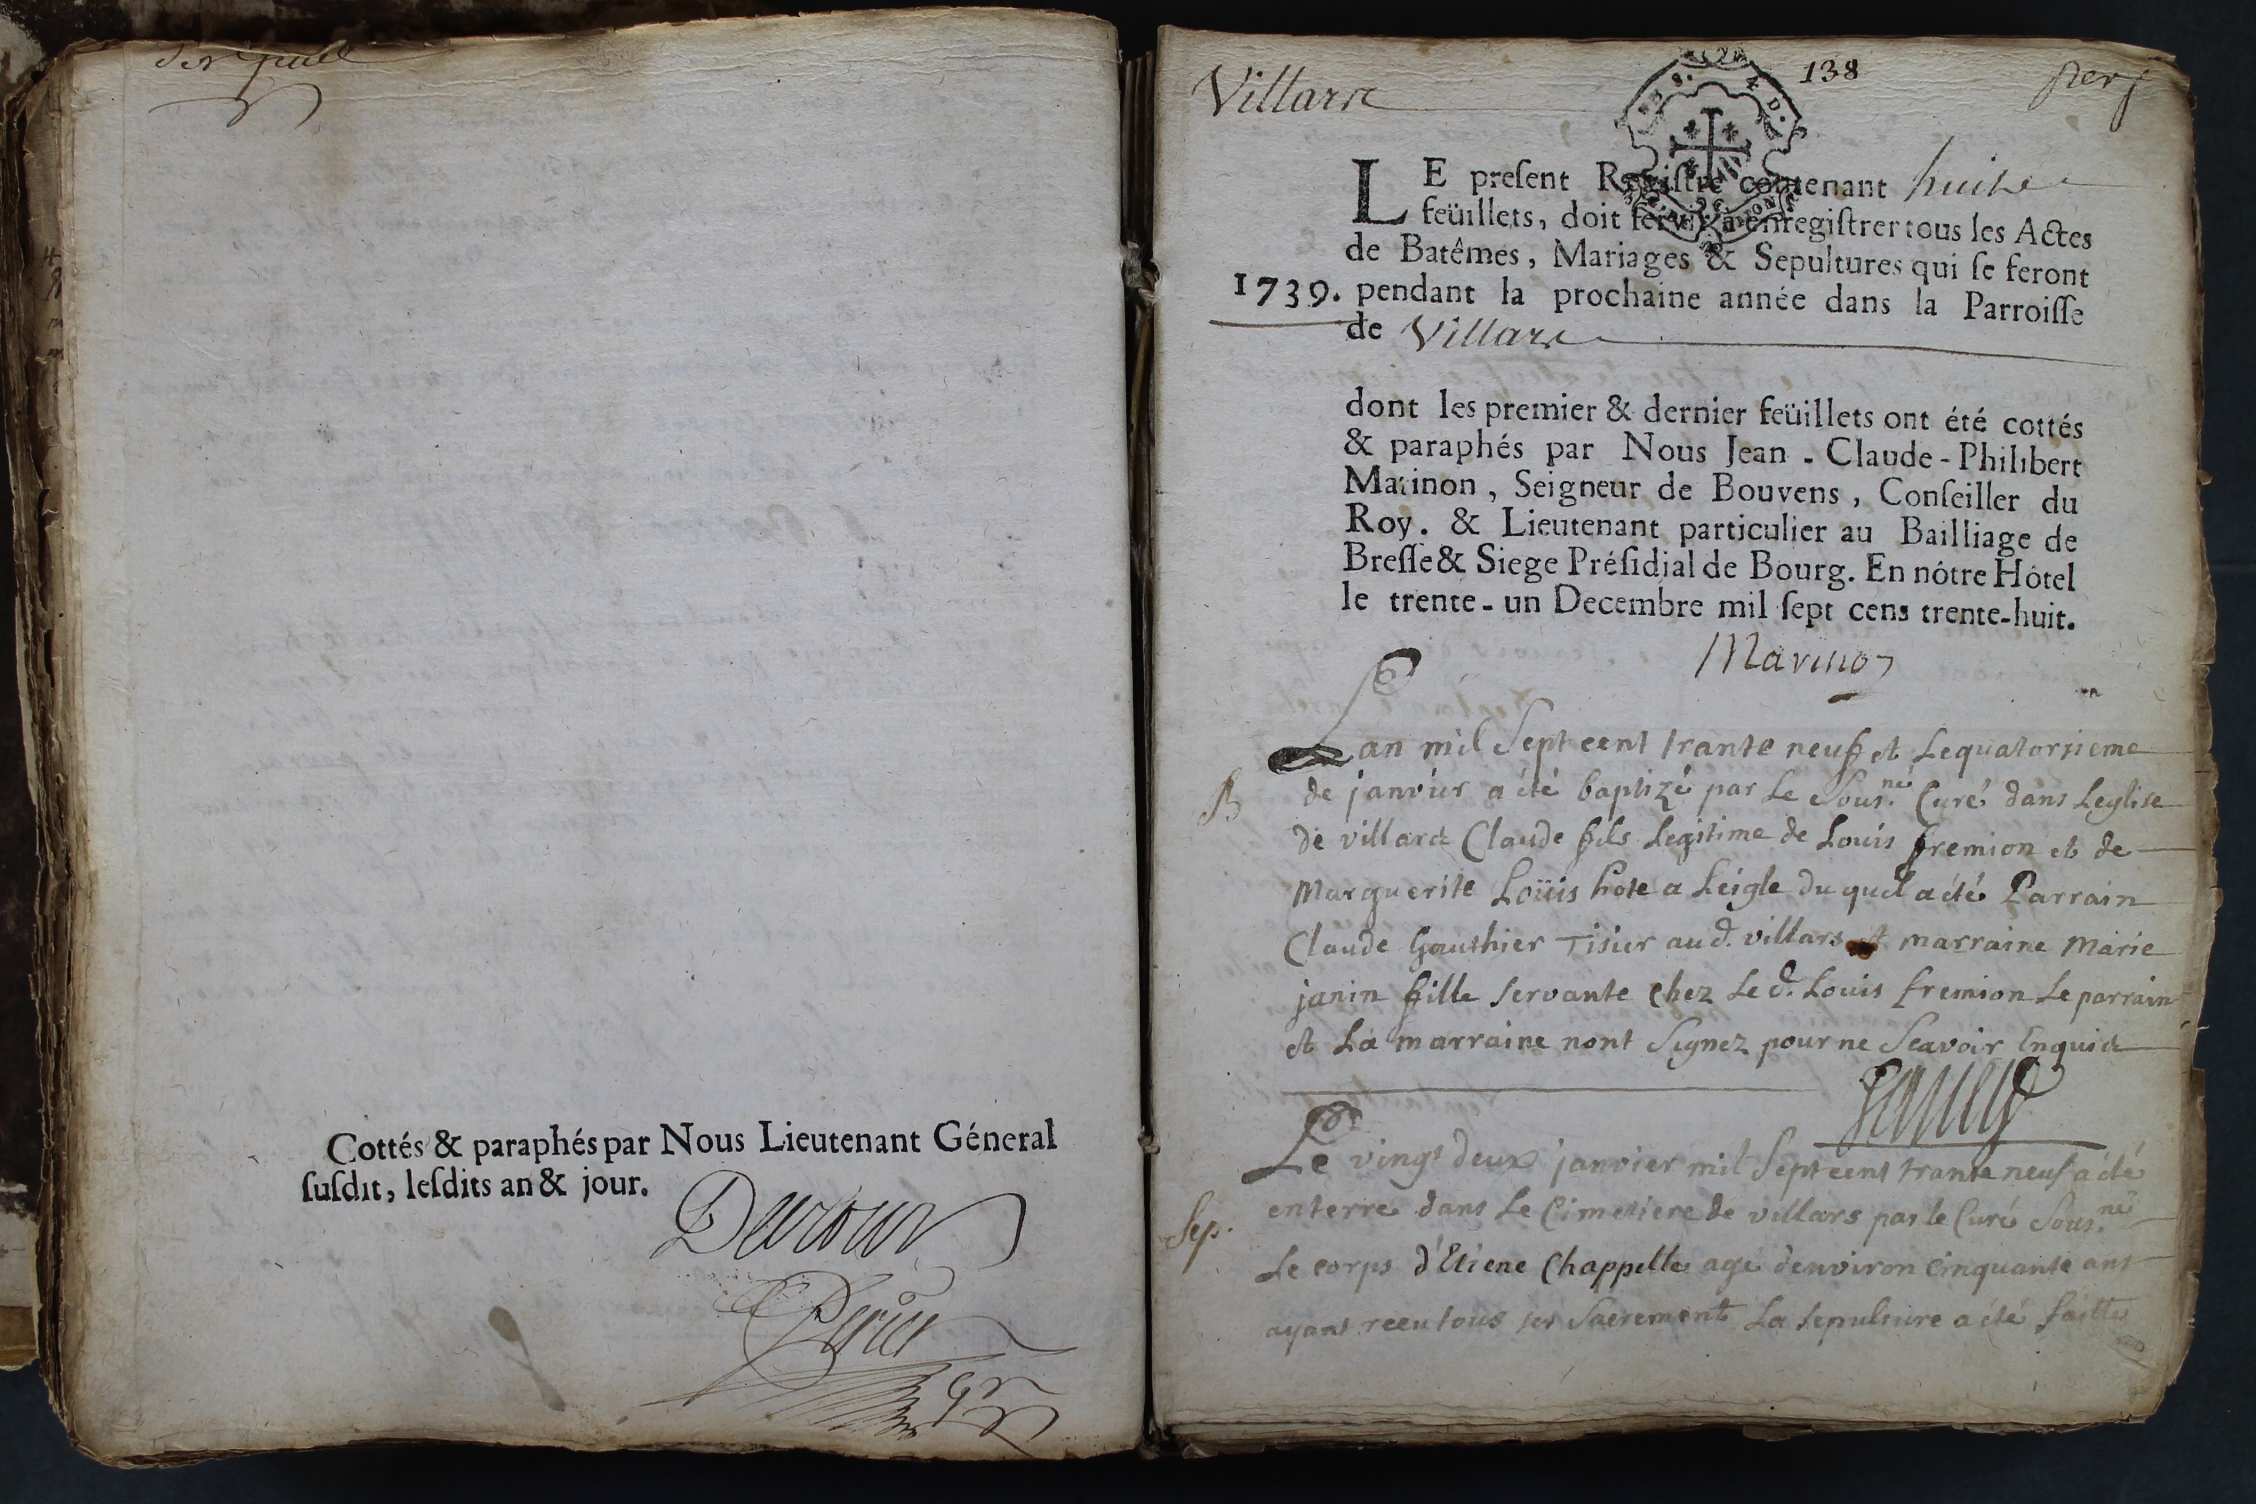 Cottés & paraphés par Nous Lieutenant Géneral
ſuſdit, leſdits an & jour.
Villars
138
LE preſent Regiſtre contenant huit
feüillets, doit ſervir à enregiſtrer tous les Actes
de Batêmes, Mariages & Sepultures qui ſe feront
1739. pendant la prochaine année dans la Parroiſſe
de Villars
dont les premier & dernier feüillets ont été cottés
& paraphés par Nous Jean-Claude-Philibert
Marinon, Seigneur de Bouvens, Conſeiller du
Roy. & Lieutenant particulier au Bailliage de
Breſſe & Siege Préſidial de Bourg. En nôtre Hôtel
le trente-un Decembre mil ſept cens trente-huit.
Marinon
Lan mil Sept cent trante neuf et Le quatorzieme
B de janvier a été baptizé par Le Sous.né Curé dans Leglise
de villars Claude fils Legitime de Louis fremion et de
Marguerite Loüis hote a Leigle du quel a été Parrain
Claude Gauthier Tisier aud. villars et marraine Marie
janin fille servante chez Le d. Louis fremion Le parrain
et La marraine nont Signez pour ne Scavoir Enquis
Le vingt deux janvier mil Sept cent trante neuf a été
Sep. enterré dans Le Cimetiere de villars par le Curé Sous.né
Le corps d'Etiene Chappelle agé denviron cinquante ans
ayant receu tous ses Sacrements La sepulture a été faitte